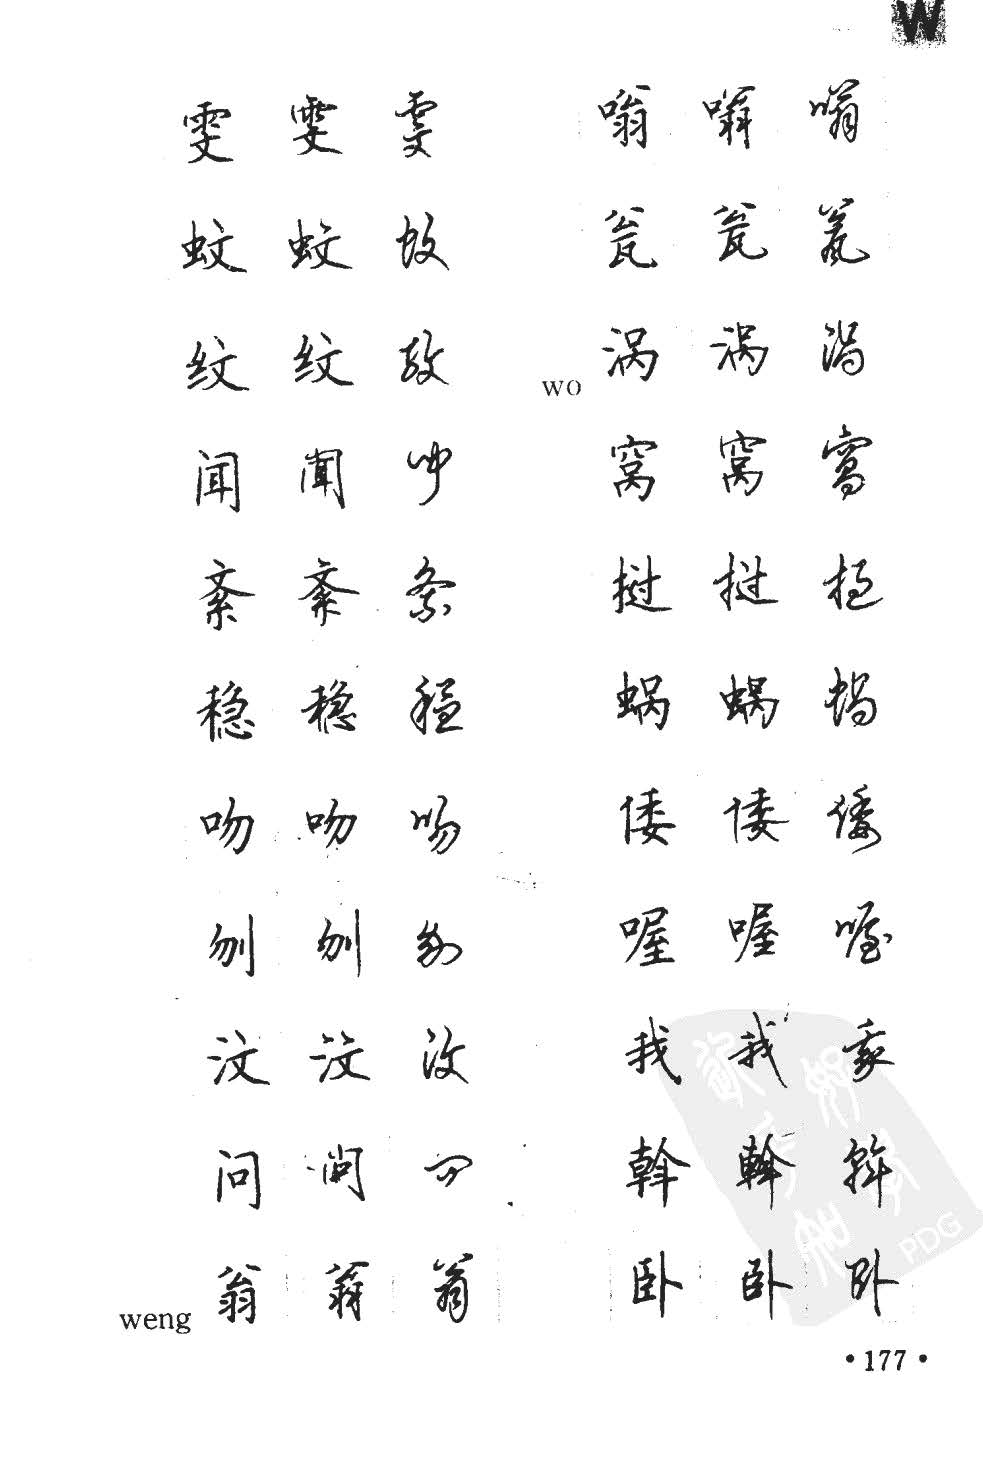 W
雯 雯 雯
蚊 蚊 蚊
纹 纹 纹
闻 闻 闻
紊 紊 紊
稳 稳 稳
吻 吻 吻
刎 刎 刎
汶 汶 汶
问 问 问
weng 翁 翁 翁
嗡 嗡 嗡
瓮 瓮 瓮
wo 涡 涡 涡
窝 窝 窝
挝 挝 挝
蜗 蜗 蜗
倭 倭 倭
喔 喔 喔
我 我 我
斡 斡 斡
卧 卧 卧
PDG
•177•